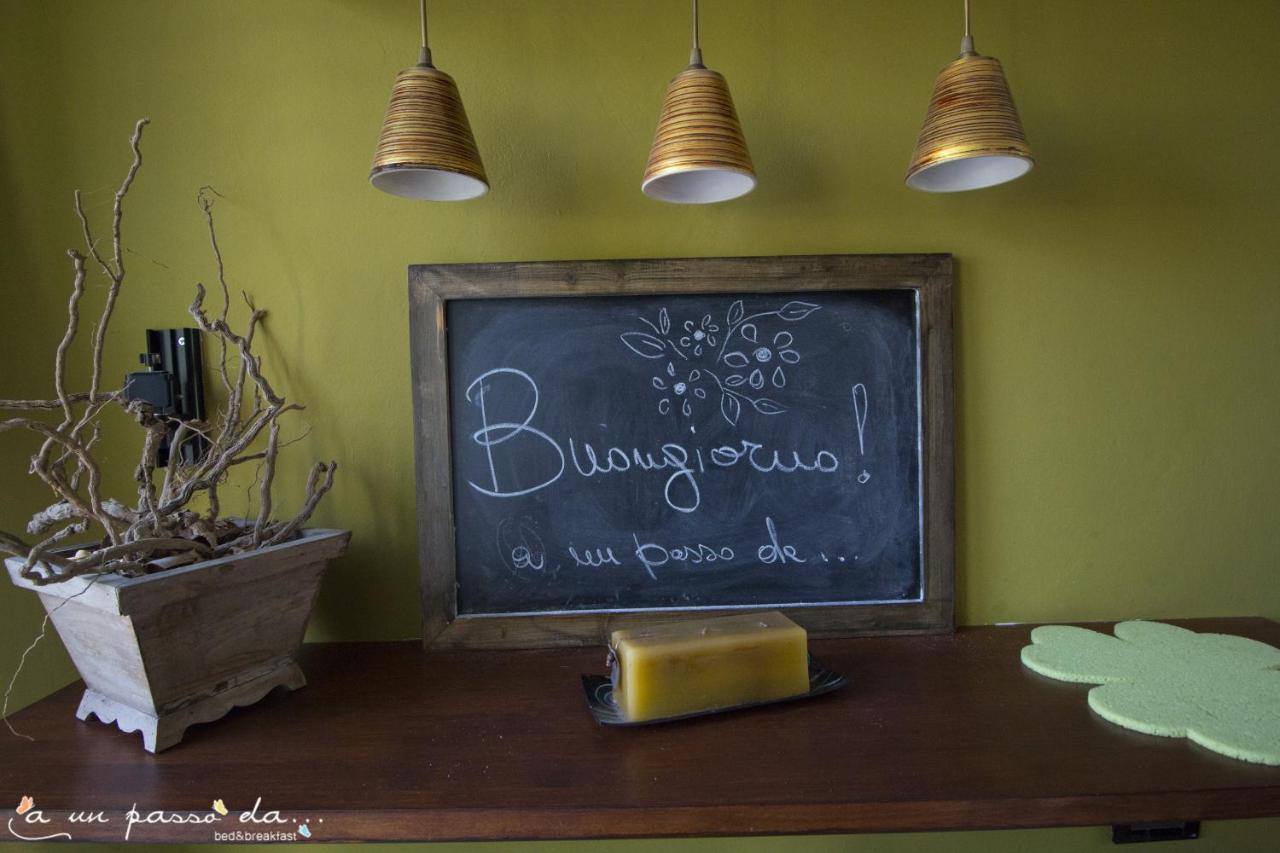 Buongiorno!
a un passo da...
a un passo da...
bed&breakfast